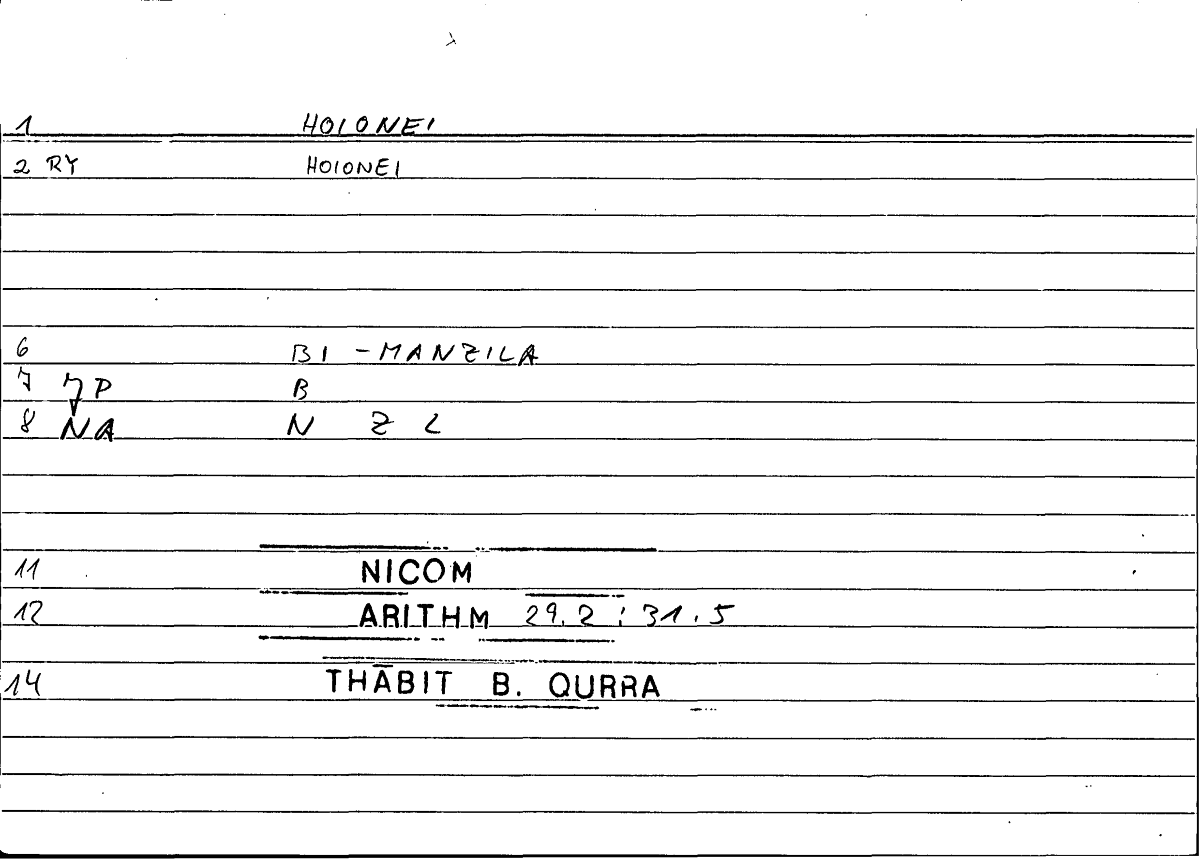 1 HOIONEI
2 RY HOIONEI
6 BI-MANZILA
7 JP B
8 NA N Z L
11 NICOM
12 ARITHM 29.2 ; 31.5
14 THĀBIT B. QURRA